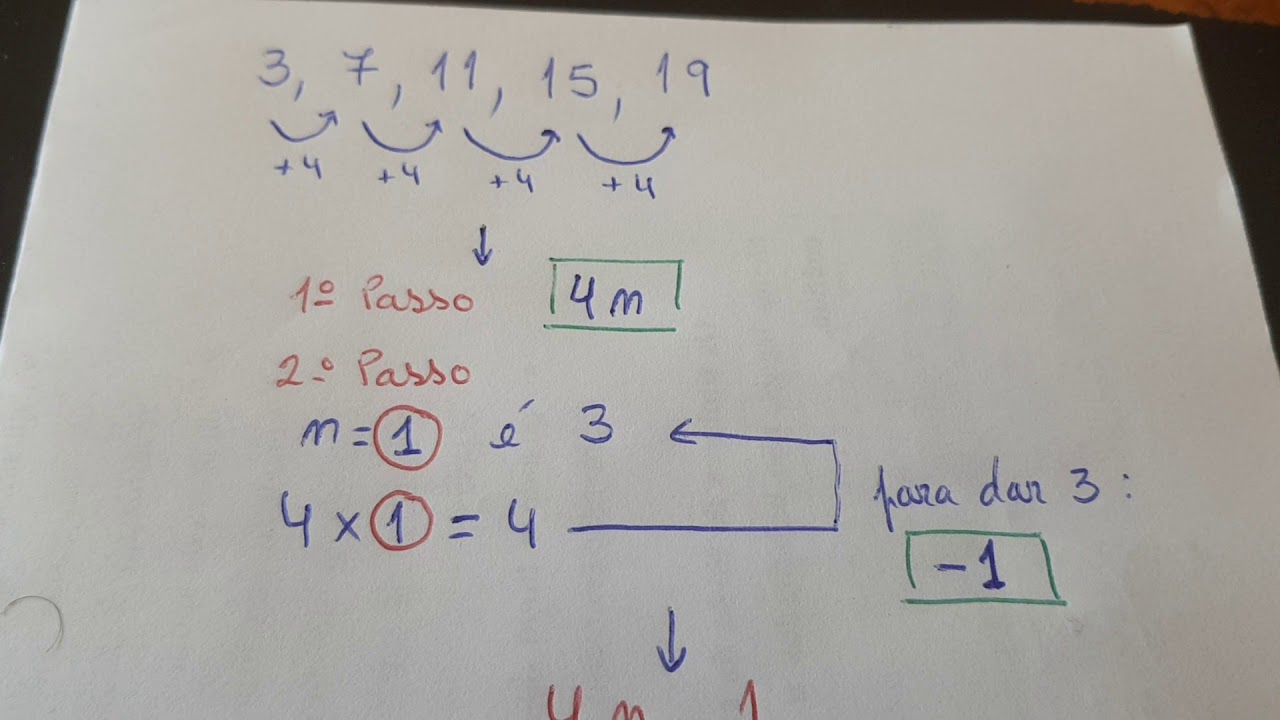 3, 7, 11, 15, 19
+4 +4 +4 +4
1º Passo 4n
2.º Passo
n = 1 é 3
4 x 1 = 4
para dar 3 :
-1
4n 1